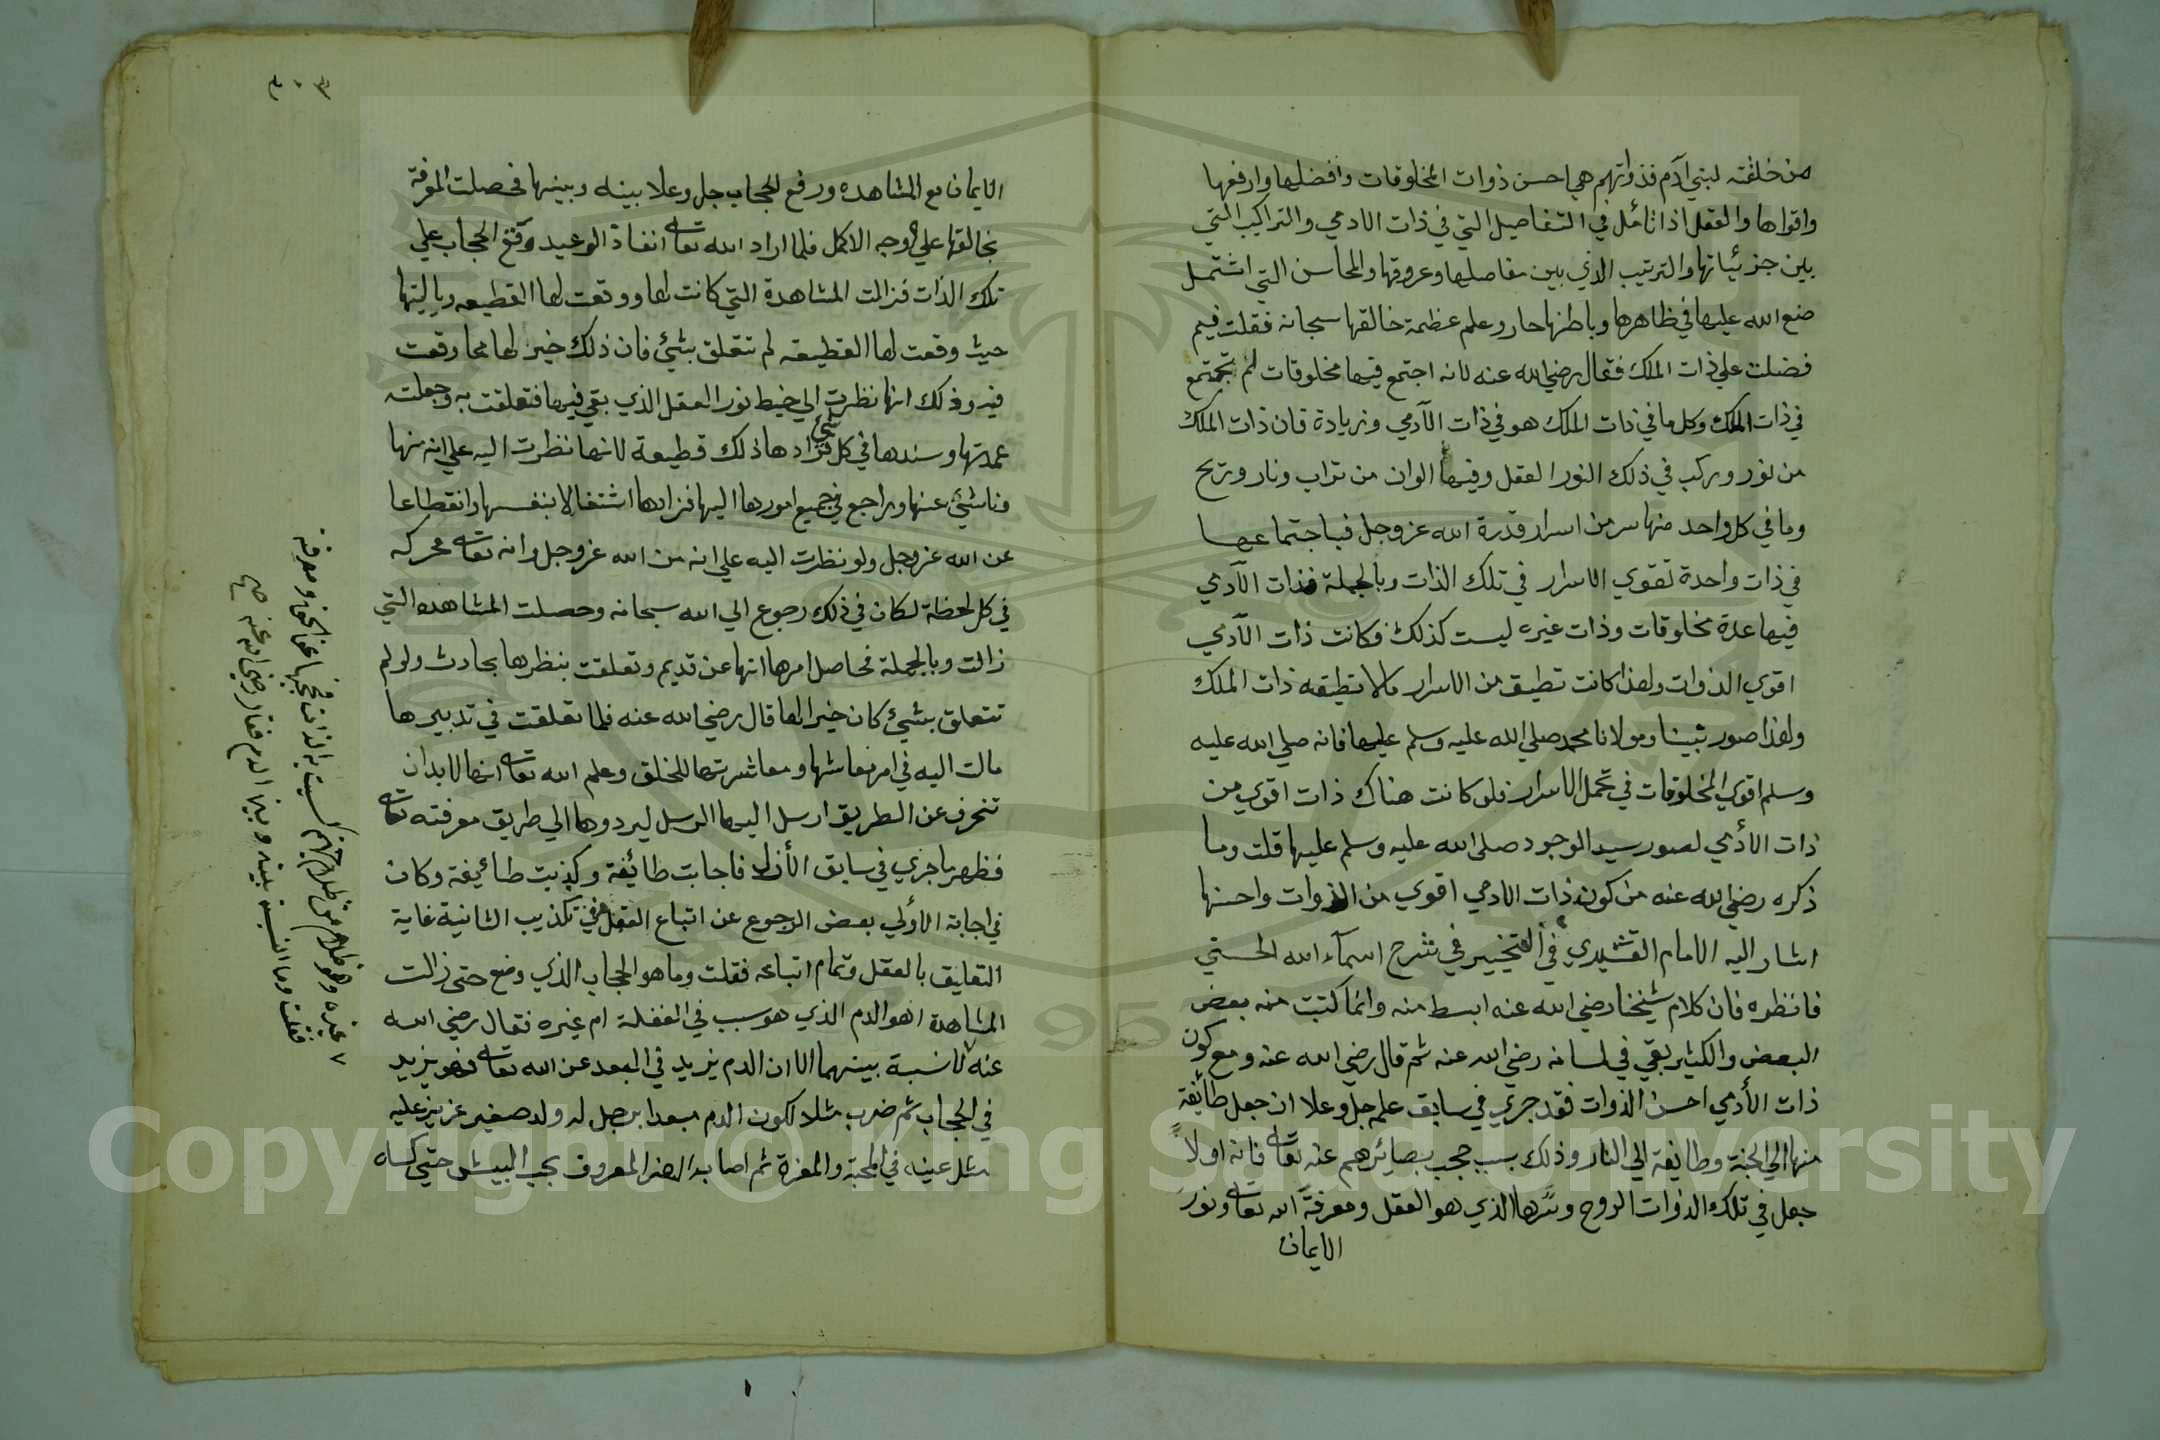 من خلقته لبني آدم فذواتهم هي احسن ذوات المخلوقات وافضلها وارفعها
واقواها والعقل اذا تامل في التفاصيل التي في ذات الادمي والتراكيب التي
بين جزئياتها والترتيب الذي بين مفاصلها وعروقها والمحاسن التي اشتمل
صنع الله عليها في ظاهرها وباطنها حار وعلم عظمة خالقها سبحانه فقلت فبم
فضلت علي ذات الملك فقال رضي الله عنه لانه اجتمع فيها مخلوقات لم تجتمع
في ذات الملك وكل ما في ذات الملك هو في ذات الآدمي وزيادة فان ذات الملك
من نور وركب في ذلك النور العقل وفيها الوان من تراب ونار وريح
وما في كل واحد منها سر من اسرار قدرة الله عز وجل فباجتماعها
في ذات واحدة تقوي الاسرار في تلك الذات وبالجملة فذات الآدمي
فيها عدة مخلوقات وذات غيره ليست كذلك وكانت ذات الآدمي
اقوي الذوات ولهذا كانت تطيق من الاسرار مالا تطيقه ذات الملك
ولهذا صور نبينا ومولانا محمد صلي الله عليه وسلم عليها فانه صلي الله عليه
وسلم اقوي المخلوقات في تحمل الاسرار فلو كانت هناك ذات اقوي من
ذات الأدمي لصور سيد الوجود صلى الله عليه وسلم عليها قلت وما
ذكره رضي الله عنه من كون ذات الادمي اقوي من الذوات واحسنها
اشار اليه الامام القشيري في التحبير في شرح اسمآء الله الحسني
فانظره فان كلام شيخنا رضي الله عنه ابسط منه وانما كتبت منه بعض
البعض والكثير بقي في لسانه رضي الله عنه ثم قال رضي الله عنه ومع كون
ذات الأدمي احسن الذوات فقد جري في سابق علمه جل وعلا ان جعل طائفة
منها الي الجنة وطايفة الي النار وذلك بسبب حجب بصائرهم عنه تعالى فانه اولاً
جعل في تلك الذوات الروح وسرها الذي هو العقل ومعرفة الله تعالى ونور
الايمان
الايمان مع المشاهده ورفع الحجاب جل وعلا بينه وبينها فحصلت المعرفة
بخالقها علي الوجه الاكمل فلما اراد الله تعالى انفاذ الوعيد وقع الحجاب علي
تلك الذات فزالت المشاهدة التي كانت لها ووقعت لها القطيعه وياليتها
حيث وقعت لها القطيعه لم تتعلق بشيئ فان ذلك خير لها مما وقعت
فيه وذلك انها نظرت الي خيط نور العقل الذي بقي فيها فتعلقت به وجعلته
عمدتها وسندها في كل شيئ فزادها ذلك قطيعة لانها نظرت اليه علي انه منها
وناشئ عنها وراجع في جميع امورها اليها فزادها اشتغالا بنفسها وانقطاعا
عن الله عز وجل ولو نظرت اليه علي انه من الله عز وجل وانه تعالى محركه
في كل لحظة لكان في ذلك رجوع الي الله سبحانه وحصلت المشاهده التي
زالت وبالجملة فحاصل امرها انها عن قديم وتعلقت بنظرها بحادث ولو لم
تتعلق بشيئ كان خيرا لها قال رضي الله عنه فلما تعلقت في تدبيرها
مالت اليه في امر معاشها ومعاشرتها للخلق وعلم الله تعالى انها لابد ان
تنحرف عن الطريق ارسل اليها الرسل ليردوها الي طريق معرفته تعالى
فظهر ما جري في سابق الأزل فاجابت طائفة وكذبت طائفة وكان
في اجابة الأولي بعض الرجوع عن اتباع العقل في تكذيب الثانية غاية
التعليق بالعقل وتمام اتباعه فقلت وما هو الحجاب الذي وضع حتى زالت
المشاهدة اهو الدم الذي هو سبب في الغفلة ام غيره فقال رضي الله
عنه لا نسبة بينهما الا ان الدم يزيد في البعد عن الله تعالى فهو يزيد
في الحجاب ثم ضرب مثلا لكون الدم مبعدا برجل له ولد صغير عزيز عليه
مثل عينه في المحبة والمعزة ثم اصابه الضر المعروف بحب البيش حتي كساه
غيره وهو ظلام من ظلام جهنم كسيت به الذات فحجبها عن الحق ومعرفته
فقلت وما النسبة بينه وبين الدم فقال رضي الله عنه صح
Copyright © King Saud University
1957